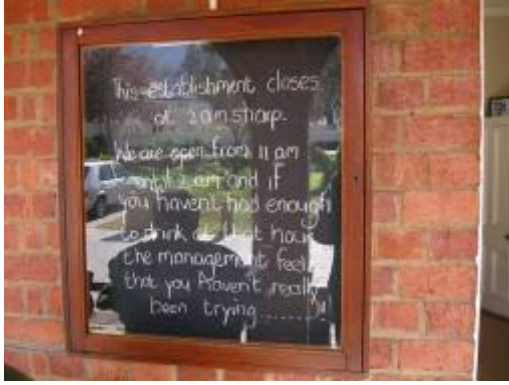 This establishment closes
at 2am sharp.
We are open from 11 am
until 2 am and if
you havent had enough
to drink at that hour
the management feel
that you haven't really
been trying........!